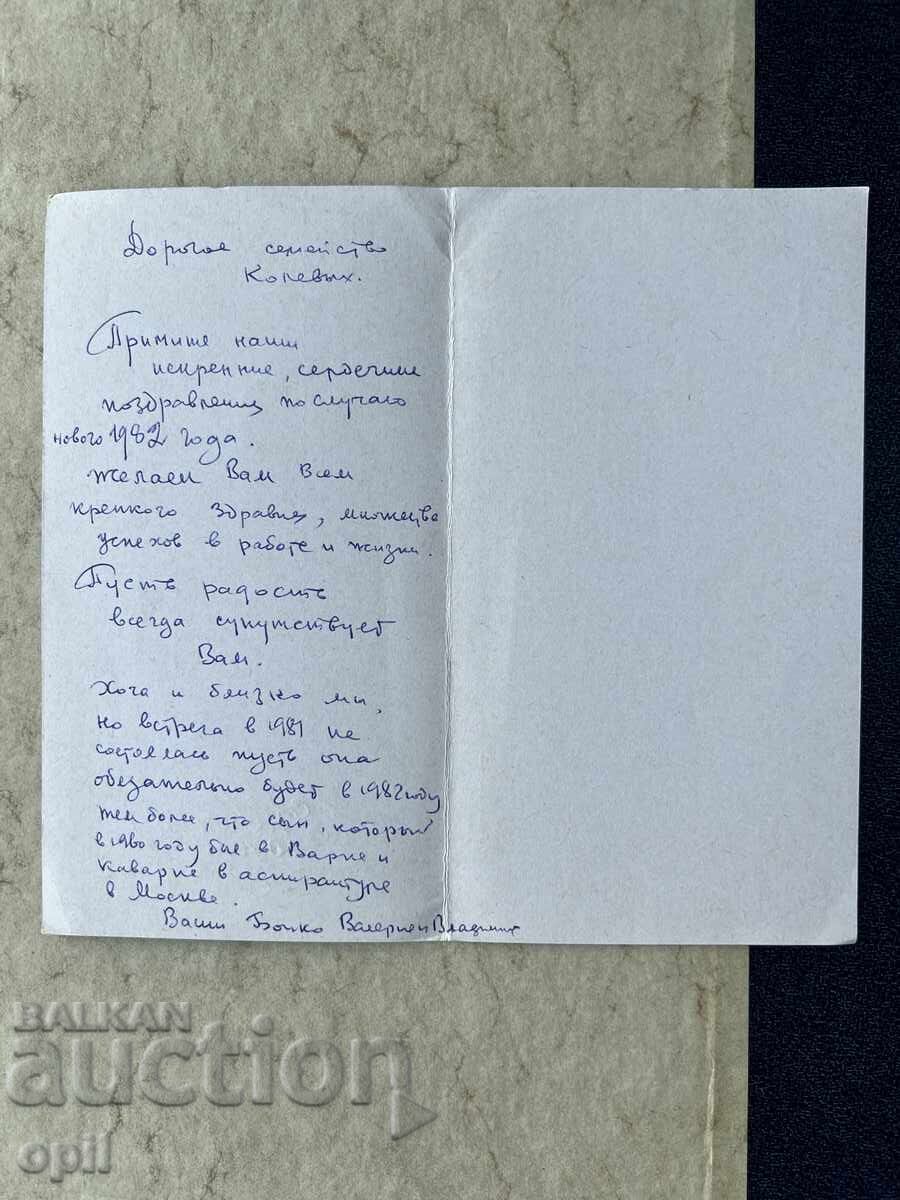 Дорогое семейство
Колевых.
Примите наши
искренние, сердечные
поздравления по случаю
нового 1982 года.
желаем Вам всем
крепкого здравия, множества
успехов в работе и жизни.
Пусть радость
всегда супутствует
Вам.
Хоча и близко мы,
но встреча в 1981 не
состоялась пусть она
обезательно будет в 1982 году
тем более, что сын, который
в 1980 году был в Варне и
Каварне в аспирантуре
в Москве.
Ваши Бойко Валерий и Владимир
BALKAN
auction
opil